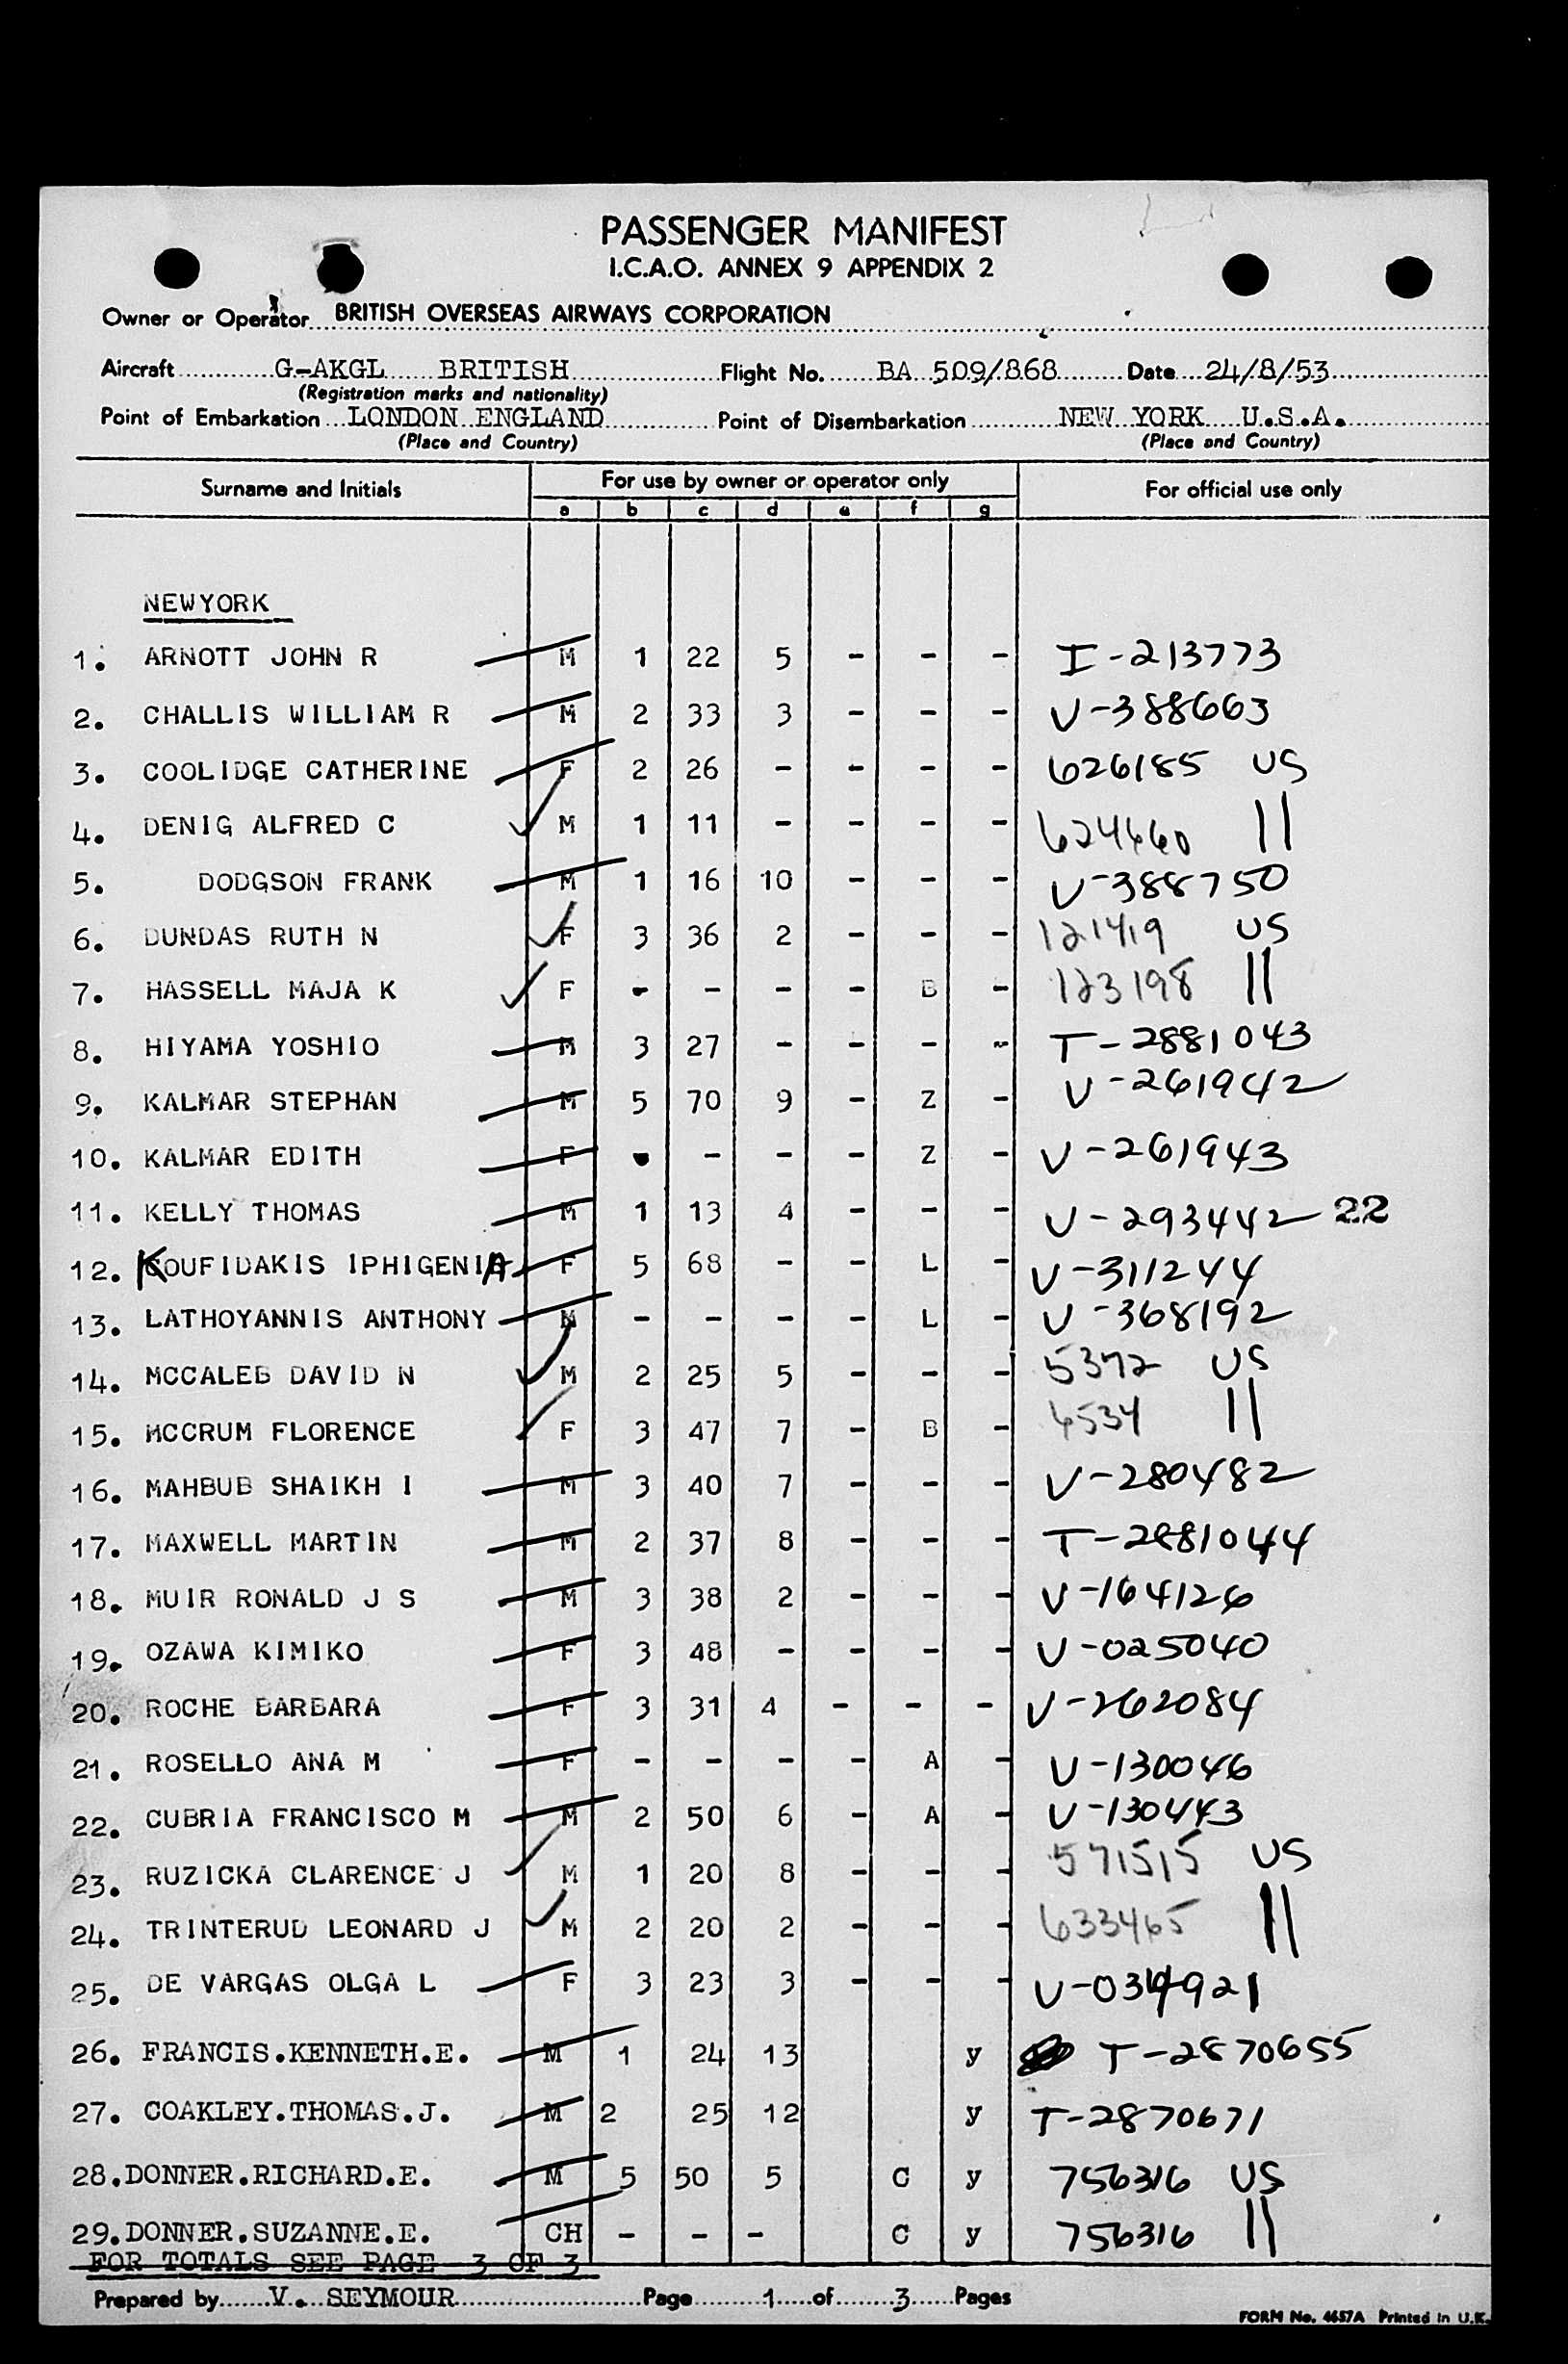 PASSENGER MANIFEST
I.C.A.O. ANNEX 9 APPENDIX 2
Owner or Operator BRITISH OVERSEAS AIRWAYS CORPORATION
Aircraft G-AKGL BRITISH Flight No. BA 509/868 Date 24/8/53
(Registration marks and nationality)
Point of Embarkation LONDON ENGLAND Point of Disembarkation NEW YORK U.S.A.
(Place and Country) (Place and Country)
Surname and Initials For use by owner or operator only For official use only
a b c d e f g
NEWYORK
1. ARNOTT JOHN R M 1 22 5 - - - I-213773
2. CHALLIS WILLIAM R M 2 33 3 - - - V-388663
3. COOLIDGE CATHERINE F 2 26 - - - - 626185 US
4. DENIG ALFRED C M 1 11 - - - - 624660 ||
5. DODGSON FRANK M 1 16 10 - - - V-388750
6. DUNDAS RUTH N F 3 36 2 - - - 121419 US
7. HASSELL MAJA K F - - - - B - 123198 ||
8. HIYAMA YOSHIO M 3 27 - - - - T-2881043
9. KALMAR STEPHAN M 5 70 9 - Z - V-261942
10. KALMAR EDITH F - - - - Z - V-261943
11. KELLY THOMAS M 1 13 4 - - - V-293442 22
12. KOUFIDAKIS IPHIGENIA F 5 68 - - L - V-311244
13. LATHOYANNIS ANTHONY M - - - - L - V-368192
14. MCCALEB DAVID N M 2 25 5 - - - 5372 US
15. MCCRUM FLORENCE F 3 47 7 - B - 6534 ||
16. MAHBUB SHAIKH I M 3 40 7 - - - V-280482
17. MAXWELL MARTIN M 2 37 8 - - - T-2881044
18. MUIR RONALD J S M 3 38 2 - - - V-164126
19. OZAWA KIMIKO F 3 48 - - - - V-025040
20. ROCHE BARBARA F 3 31 4 - - - V-262084
21. ROSELLO ANA M F - - - - A - V-130046
22. CUBRIA FRANCISCO M M 2 50 6 - A - V-130443
23. RUZICKA CLARENCE J M 1 20 8 - - - 571515 US
24. TRINTERUD LEONARD J M 2 20 2 - - - 633465 ||
25. DE VARGAS OLGA L F 3 23 3 - - - V-034921
26. FRANCIS.KENNETH.E. M 1 24 13 y T-2870655
27. COAKLEY.THOMAS.J. M 2 25 12 y T-2870671
28. DONNER.RICHARD.E. M 5 50 5 C y 756316 US
29. DONNER.SUZANNE.E. CH - - - C y 756316 ||
FOR TOTALS SEE PAGE 3 OF 3
Prepared by V. SEYMOUR Page 1 of 3 Pages
FORM No. 4657A Printed in U.K.